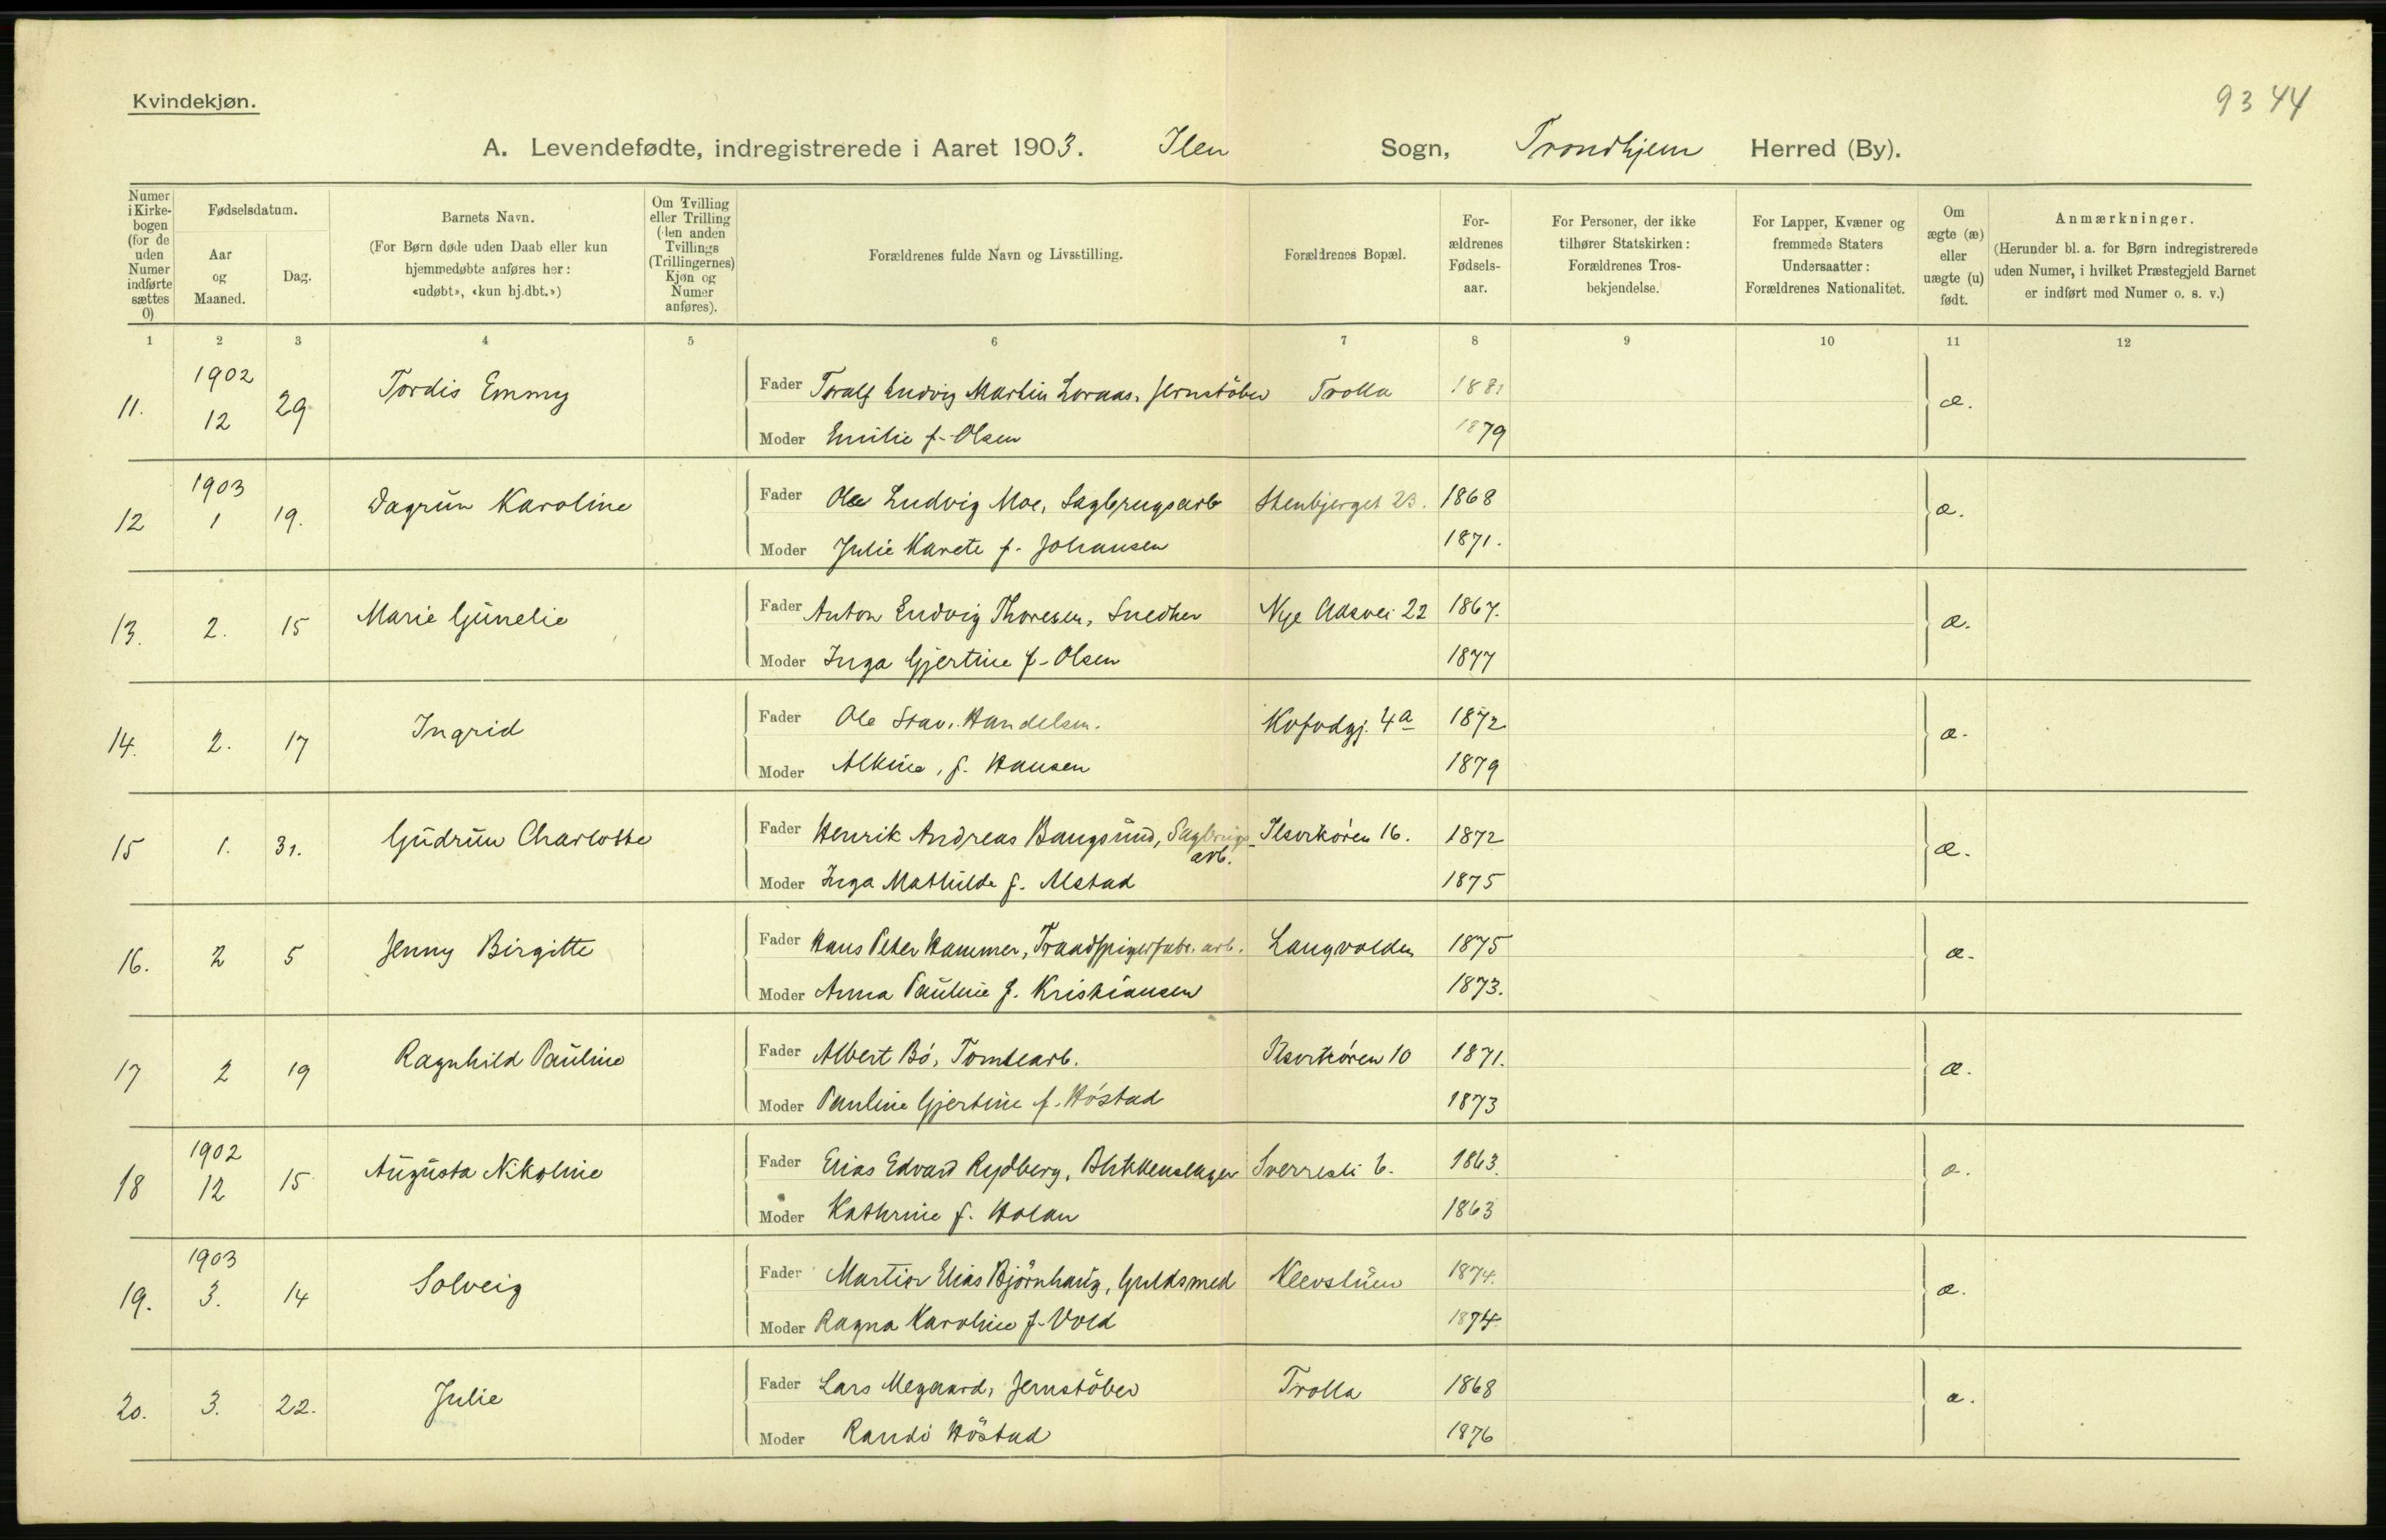 Kvindekjøn.
93 44
A. Levendefødte, indregistrerede i Aaret 1903. Ilen Sogn, Trondhjem Herred (By).
Numer i Kirke-bogen (for de uden Numer indførte sættes 0)
Fødselsdatum.
Aar og Maaned.
Dag.
Barnets Navn.
(For Børn døde uden Daab eller kun hjemmedøbte anføres her: «udøbt», «kun hj.dbt.»)
Om Tvilling eller Trilling (den anden Tvillings (Trillingernes) Kjøn og Numer anføres).
Forældrenes fulde Navn og Livsstilling.
Forældrenes Bopæl.
For-ældrenes Fødsels-aar.
For Personer, der ikke tilhører Statskirken: Forældrenes Tros-bekjendelse.
For Lapper, Kvæner og fremmede Staters Undersaatter: Forældrenes Nationalitet.
Om ægte (æ) eller uægte (u) født.
Anmærkninger.
(Herunder bl. a. for Børn indregistrerede uden Numer, i hvilket Præstegjeld Barnet er indført med Numer o. s. v.)
1 2 3 4 5 6 7 8 9 10 11 12
11. 1902 12 29 Tordis Emmy Fader Toralf Ludvig Martin Loraas, Jernstöber Trolla 1881 æ.
Moder Emilie f. Olsen 1879
12 1903 1 19. Dagrun Karoline Fader Ole Ludvig Moe, Sagbrugsarb Stenbjerget 23. 1868 æ.
Moder Julie Karete f. Johansen 1871.
13. 2. 15 Marie Gunelie Fader Anton Ludvig Thoresen, Snedker Nye Aasvei 22 1867. æ.
Moder Inga Gjertine f. Olsen 1877
14. 2. 17 Ingrid Fader Ole Stav. Handelsm. Kofodgj. 4a 1872 æ.
Moder Alkine, f. Hansen 1879
15 1. 31. Gudrun Charlotte Fader Henrik Andreas Bangsund, Sagbrugs- Ilsvikören 16. 1872 æ.
arb.
Moder Inga Mathilde f. Alstad 1875
16. 2 5 Jenny Birgitte Fader Hans Peter Hammer, Traadspigerfabr. arb. Langvolden 1875 æ.
Moder Anna Pauline f. Kristiansen 1873.
17 2 19 Ragnhild Pauline Fader Albert Bö, Tomtearb. Ilsvikören 10 1871. æ.
Moder Pauline Gjertine f. Höstad 1873
18 1902 12 15 Augusta Nikoline Fader Elias Edvard Rydberg, Blikkenslager Sverresli 6. 1863. æ.
Moder Kathrine f. Holan 1863
19. 1903 3. 14 Solveig Fader Martin Elias Björnhaug, Guldsmed 1874. æ.
Moder Ragna Karoline f. Vold 1874
20. 3. 22. Julie Fader Lars Megaard, Jernstöber Trolla 1868 æ.
Moder Randi Höstad 1876